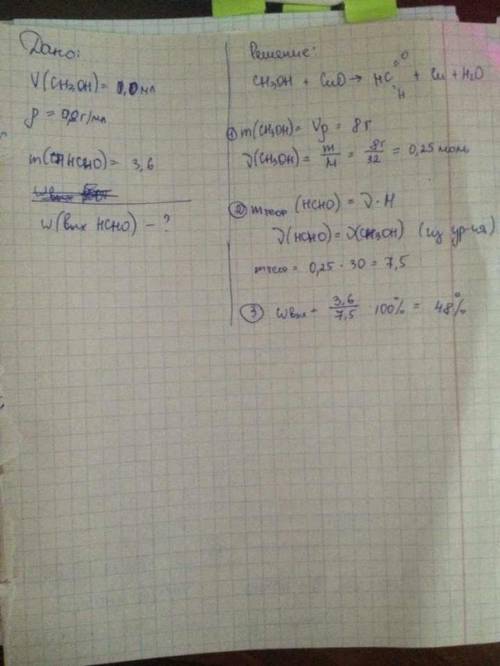 Дано:
V(CH₃OH) = 10,0 мл
ρ = 0,8 г/мл
m(HCHO) = 3,6
W(вых HCHO) - ?
Решение:
CH₃OH + CuO → HC
O
H
+ Cu + H₂O
① m(CH₃OH) = Vρ = 8 г
ν(CH₃OH) = m/M = 8г/32 = 0,25 моль
② mтеор (HCHO) = ν · M
ν(HCHO) = ν(CH₃OH) (из ур-ия)
mтеор = 0,25 · 30 = 7,5
③ wвых = 3,6/7,5 100% = 48%